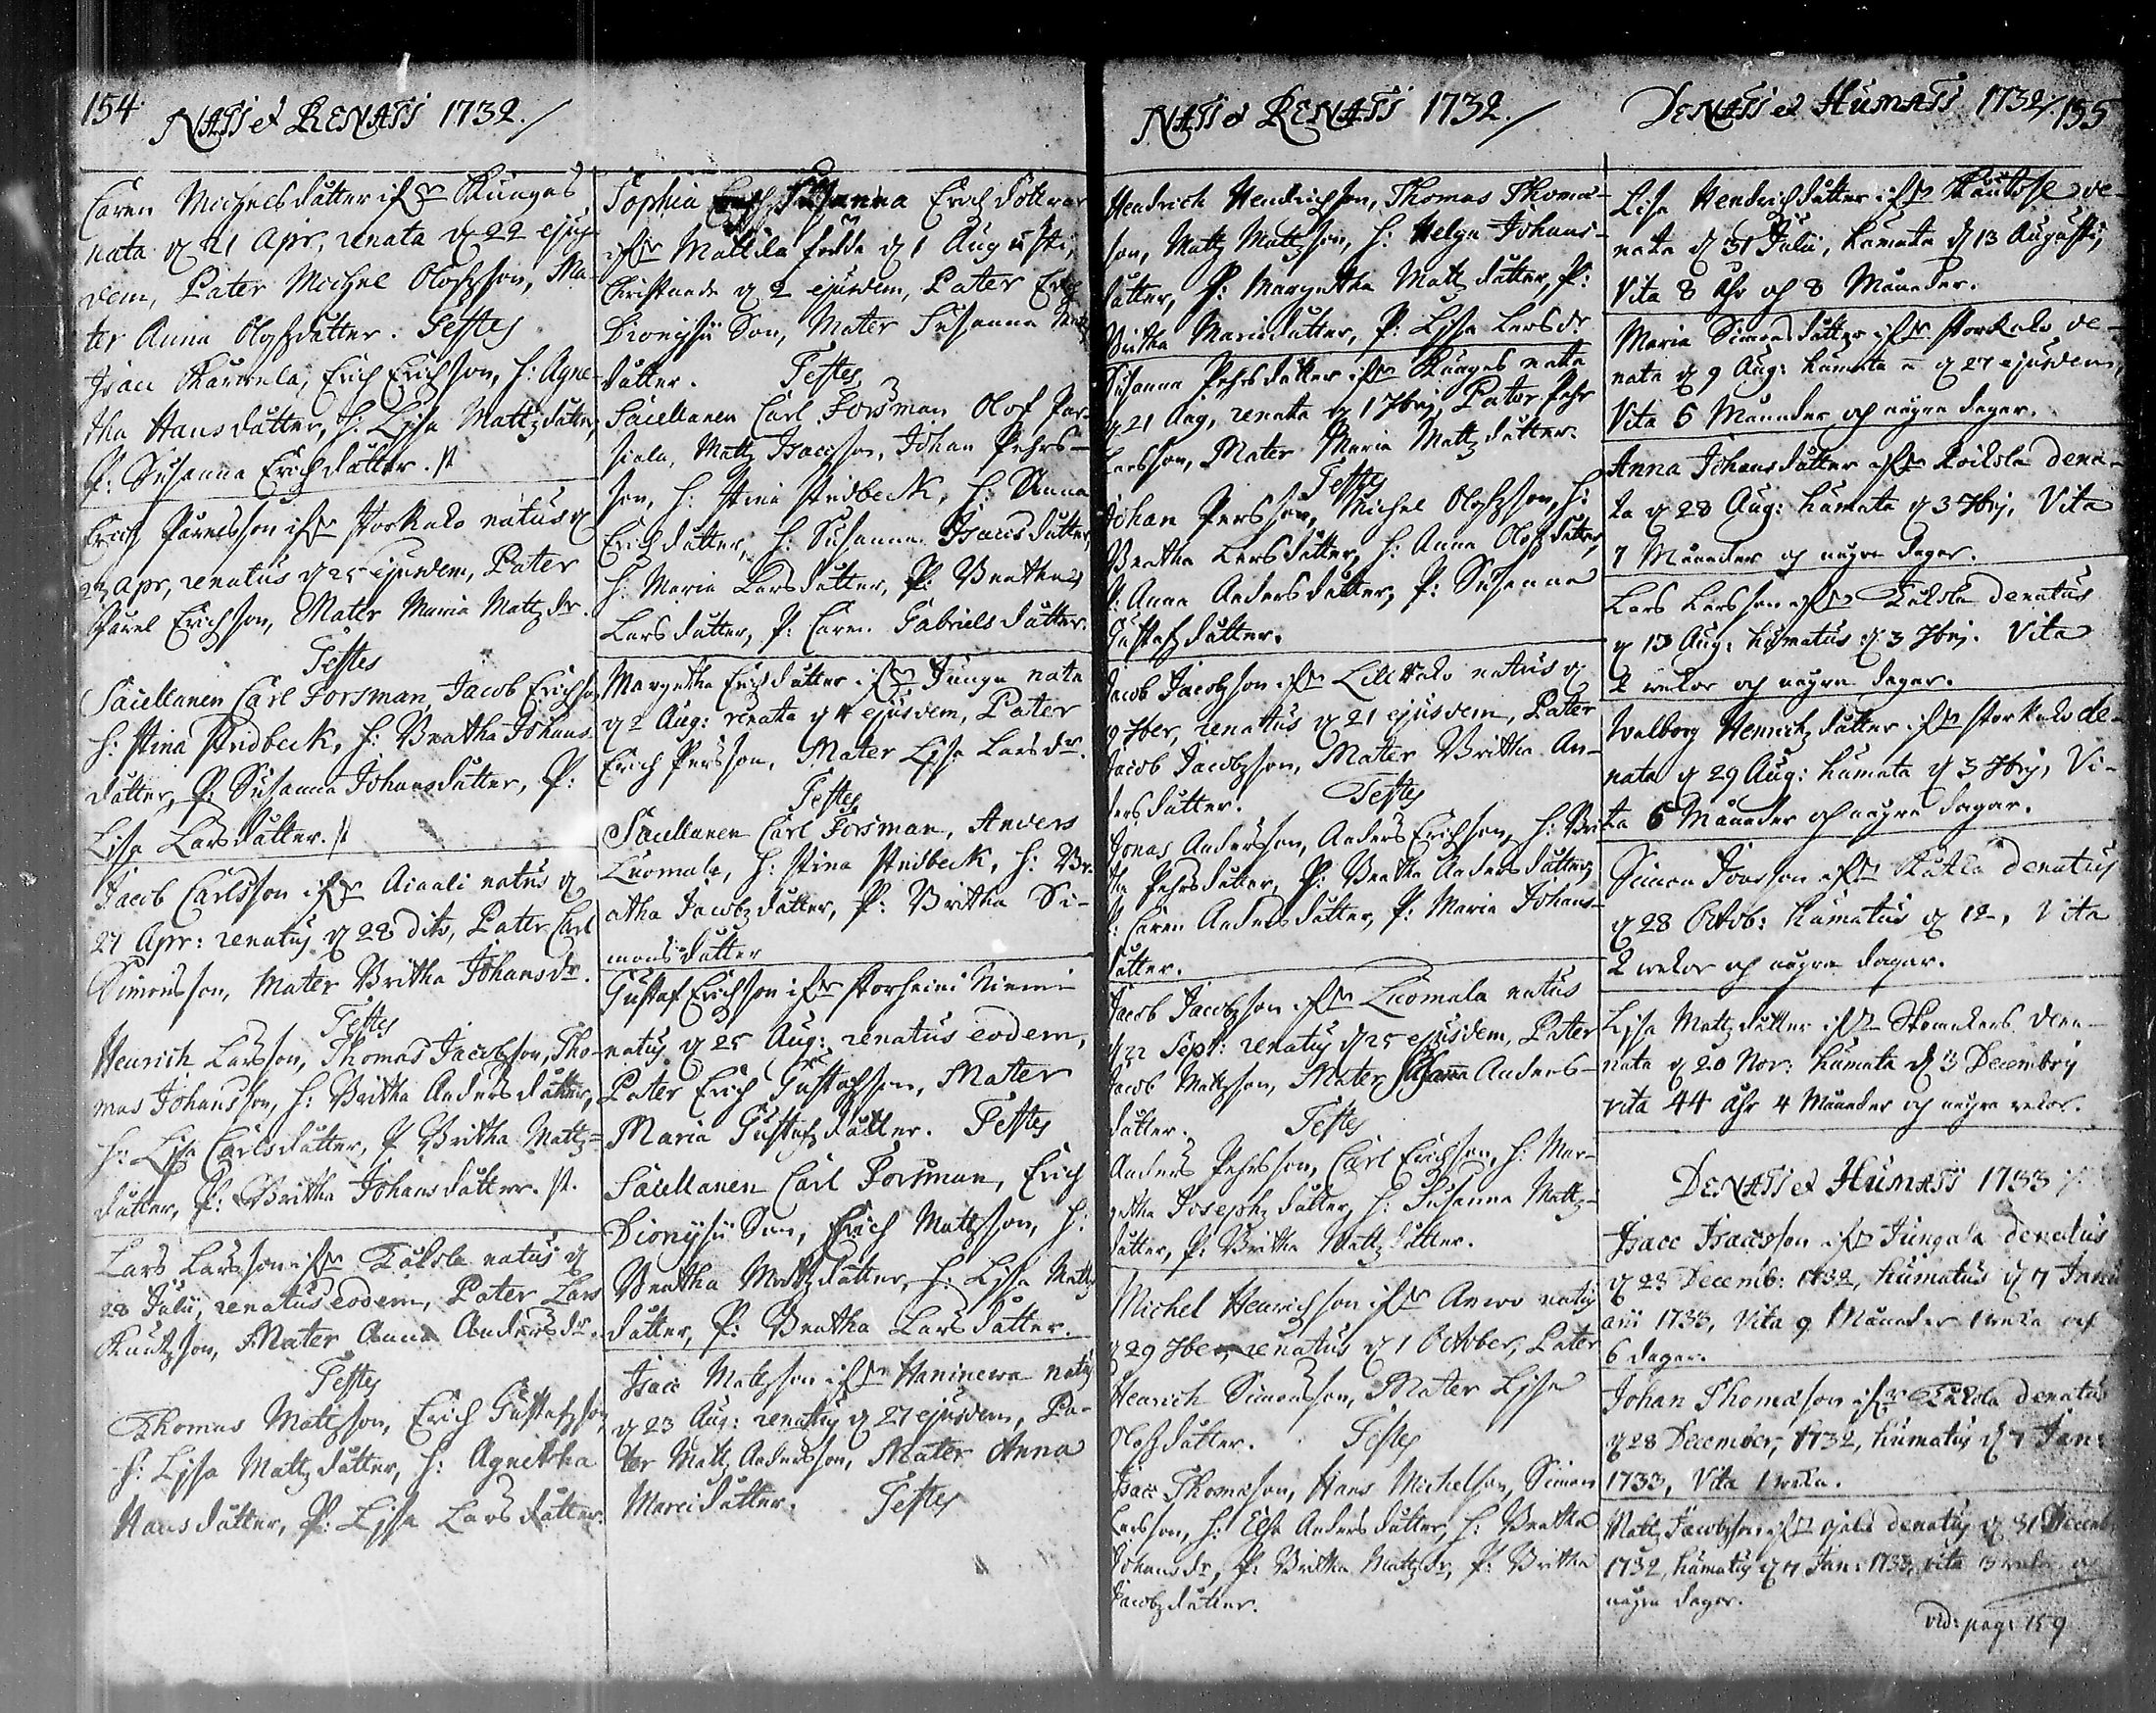 154.
NATI et RENATI 1732./
Caren Michelsdatter ifr Kuunges
nata d 21 Apr, renata d 22 ejus-
dem, Pater Michel Olofzson, Ma-
ter Anna Olofzdatter. Testes
Isac Kaurela, Erich Erichson, H: Agne-
tha Hansdatter, H: Lisa Mattzdatter,
P: Susanna Erichsdatter.
Erich Pavelsson ifr Storkalo natus d
Apr, renatus d 25 ejusdem, Pater
Pavel Erichsson, Mater Maria Mattzdr.
Testes
Sacellanen Carl Forsman, Jacob Erichson
H: Stina Stidbeck, H: Beatha Johans
datter, P: Susanna Johansdatter, P:
Lisa Larsdatter.
Jacob Carlsson ifr Aiaali natus d
27 Apr: renatus d 28 dito, Pater Carl
Simonsson, Mater Britha Johansdr.
Testes
Henrich Larsson, Thomas Jacobzson, Tho-
mas Johansson, H: Britha Andersdatter,
H: Lisa Carlsdatter, P Britha Mattz-
datter, P: Britha Johansdatter.
Lars Larsson ifr Tuksla natus d
28 Julii, renatus eodem, Pater Lars
Knutzson, Mater Anna Andersdr.
Testes
Thomas Mattzson, Erich Gustafzson
H: Lisa Mattzdatter, H: Agnetha
Hansdatter, P: Lisa Larsdatter.
Sophia Susanna Erichdottrar
ifr Mattila fodde d 1 Augusti,
Christnade d 2 ejusdem, Pater Erich
Dionysii Son, Mater Susanna Mattz
datter. Testes
Sacellanen Carl Forsman Olof Par-
siala, Mattz Isacsson, Johan Pehrs-
son, H: Stina Stidbeck, H: Anna
Erichdatter, H: Susanna Isacsdatter,
H: Maria Larsdatter, P: Beatha
Larsdatter, P: Caren Gabrielsdatter.
Margetha Erichdatter ifr Junga nata
d 2 Aug: renata d 4 ejusdem, Pater
Erich Persson, Mater Lisa Larsdr.
Testes
Sacellanen Carl Forsman, Anders
Luomala, H: Stina Stidbeck, H: Be-
atha Jacobzdatter, P: Britha Si-
monsdatter
Gustaf Erichson ifr Storheini Niemi
natus d 25 Aug: renatus eodem,
Pater Erich Gustafsson, Mater
Maria Gustafzdatter. Testes
Sacellanen Carl Forsman, Erich
Dionysii Son, Erich Mattzson, H:
Beatha Mattzdatter, H: Lisa Mattz
datter, P: Beatha Larsdatter.
Isac Mattzson ifr Haninewa natus
d 23 Aug: renatus d 27 ejusdem, Pa-
ter Matz Andersson, Mater Anna
Marcidatter. Testes
NATI et RENATI 1732./
Hendrich Hendrichson, Thomas Thoma-
son, Mattz Mattzson, H: Helga Johans-
datter, H: Margetha Mattzdatter, P:
Britha Marcidatter, P: Lisa Larsdr
Susanna Pehrsdatter ifr Kuunges nata
d 21 Aug, renata d 1 7bris, Pater Pehr
Larsson, Mater Maria Mattzdatter.
Testes
Johan Persson, Michel Olofzson, H:
Beatha Larsdatter, H: Anna Olofzdatter,
P: Anna Andersdatter, P: Susanna
Gustafzdatter.
Jacob Jacobzson ifr Lillkalo natus d
9 7ber, renatus d 21 ejusdem, Pater
Jacob Jacobzson, Mater Britha An-
dersdatter. Testes
Jonas Andersson, Anders Erichson, H: Bri-
tha Pehrsdatter, P: Beatha Andersdatter,
P: Caren Andersdatter, P: Maria Johans-
datter.
Jacob Jacobzson ifr Luomala natus
d 22 Sept: renatus d 25 ejusdem, Pater
Jacob Mattzson, Mater Anders-
datter. Testes
Anders Pehrsson, Carl Erichson, H: Mar-
getha Josephzdatter, H: Susanna Mattz-
datter, P: Britha Mattzdatter.
Michel Henrichson ifr Anwo natus
d 29 7ber, renatus d 1 October, Pater
Henrich Simonsson, Mater Lisa
Olofzdatter. Testes
Isac Thomason, Hans Michelson, Simon
Larsson, H: Elsa Andersdatter, H: Beatha
Johansdr, P: Britha Mattzdr, P: Britha
Jacobzdatter.
DENATI et HUMATI 1732/. 155
Lisa Hendrichdatter ifr de-
nata d 31 Julii, humata d 13 Augusti,
Vita 8 åhr och 8 Månader.
Maria Simonsdatter ifr Storkalo de-
nata d 9 Aug: humata d 27 ejusdem,
Vita 5 Månader och några dagar.
Anna Johansdatter ifr Koiksla dena-
ta d 28 Aug: humata d 3 7bris, Vita
7 Månader och några dagar.
Lars Larsson ifr Tuksla denatus
d 13 Aug: humatus d 3 7bris. Vita
2 wekor och några dagar.
Walborg Henrichzdatter ifr Storkalo de-
nata d 29 Aug: humata d 3 7bris, Vi-
ta 6 Månader och några dagar.
Simon Joarson ifr denatus
d 28 Octob: humatus d 12, Vita
2 wekor och några dagar.
Lisa Mattzdatter ifr Skomakars dena-
nata d 20 Nov: humata d 3 Decembris
vita 44 åhr 4 Månader och några wekor.
DENATI et HUMATI 1733
Isacc Isacsson ifr Jungala denatus
d 23 Decemb: 1732, humatus d 7 Janu
arii 1733, Vita 9 Månader 1 weka och
6 dagar.
Johan Thomason ifr Tuksla denatus
d 28 December, 1732, humatus d 7 Jan:
1733, Vita 1 weka.
Mattz Jacobzson ifr denatus d 31 Decemb
1732, humatus d 7 Jan: 1733, vita 3 wekor och
några dagar.
vid: pag: 159